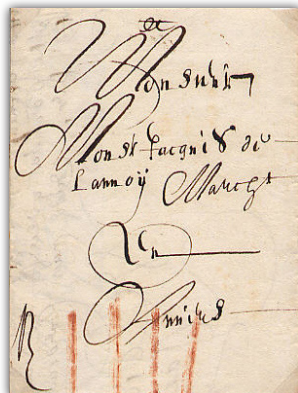 A
Monsieur
Monsr Jacques de
Lannoy Marcht
En
Anvers